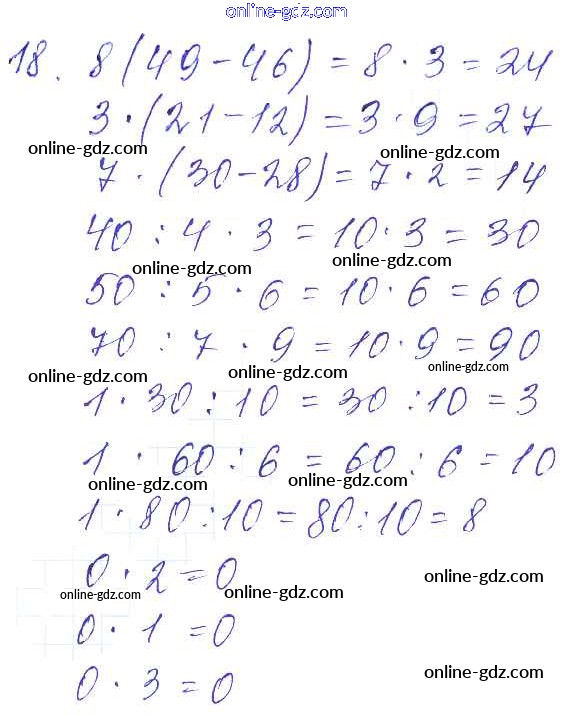 online-gdz.com
18. 8(49-46)=8·3=24
3·(21-12)=3·9=27
online-gdz.com online-gdz.com
7·(30-28)=7·2=14
40:4·3=10·3=30
online-gdz.com online-gdz.com
50:5·6=10·6=60
70:7·9=10·9=90
online-gdz.com online-gdz.com online-gdz.com
1·30:10=30:10=3
1·60:6=60:6=10
online-gdz.com online-gdz.com
1·80:10=80:10=8
0·2=0
online-gdz.com online-gdz.com online-gdz.com
0·1=0
0·3=0
online-gdz.com